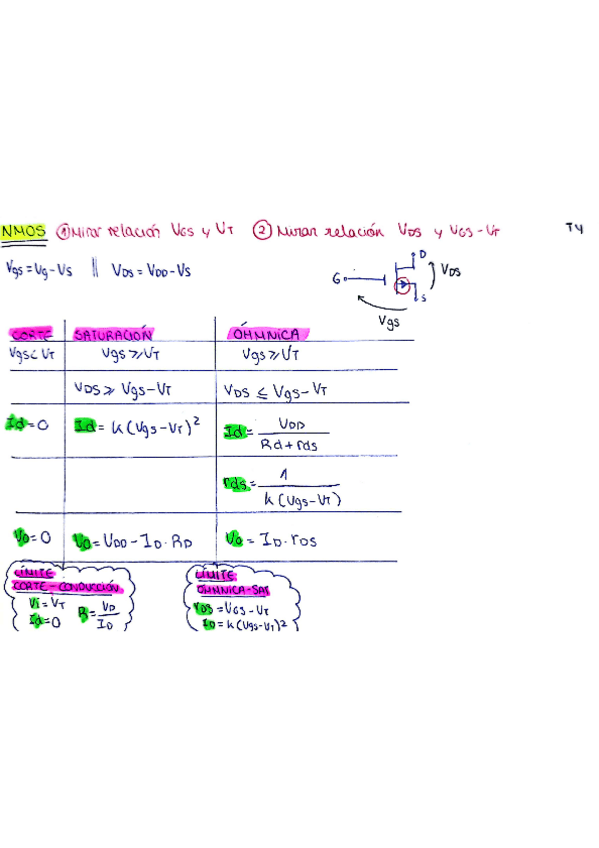 NMOS ① Mirar relación VGS y VT ② Mirar relación VDS y VGS-VT T4
Vgs = Vg - Vs || VDS = VDD - VS
G D S VDS Vgs
CORTE SATURACIÓN ÓHMNICA
Vgs < VT Vgs ⩾ VT Vgs ⩾ VT
VDS ⩾ Vgs-VT VDS ⩽ Vgs-VT
Id = 0 Id = K(Vgs-VT)² Id = VDD / Rd + rds
rds = 1 / K(Vgs-VT)
Vo = 0 Vo = VDD - ID · RD Vo = ID · rDS
LÍMITE
CORTE - CONDUCCIÓN
Vi = VT
Id = 0
R = VD / ID
LÍMITE
OHMNICA-SAT
VDS = VGS - VT
ID = K(Vgs-VT)²